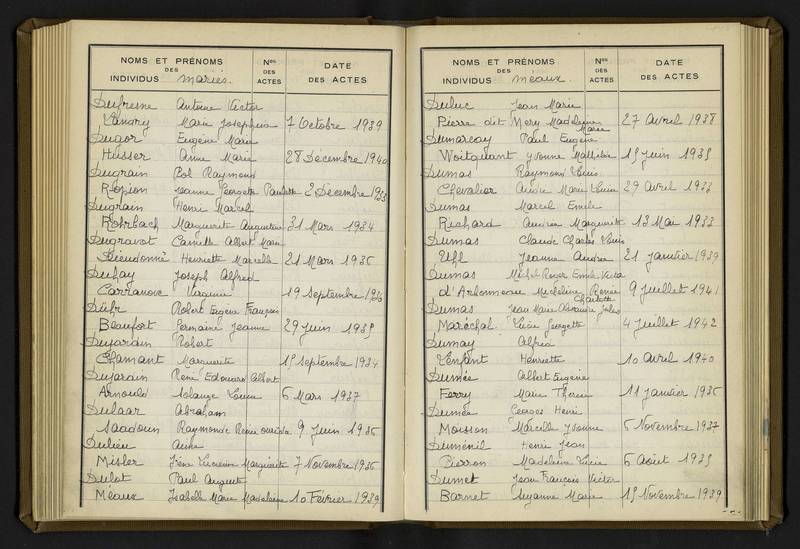 NOMS ET PRÉNOMS
DES
INDIVIDUS mariés.
Nos
DES
ACTES
DATE
DES ACTES
Dufresne Antoine Victor
Landry Marie Joséphine 7 Octobre 1939
Dugor Eugène Marie
Husser Anne Marie 28 Décembre 1940
Dugrain Pol Raymond
Ropion Jeanne Georgette Paulette 2 Décembre 1933
Dugrain Henri Marcel
Rohrbach Marguerite Augustine 31 Mars 1934
Dugravot Camille Albert Marie
Dieudonné Henriette Marcelle 21 Mars 1936
Duhay Joseph Alfred
Carranove Virginie 19 Septembre 1936
Dühr Robert Eugène François
Beaufort Germaine Jeanne 29 Juin 1935
Dujardin Robert
Chamant Marguerite 15 Septembre 1934
Dujardin René Edouard Albert
Arnould Solange Lucie 6 Mars 1937
Dulaar Abraham
Saadoun Raymonde Renée 9 Juin 1936
Dulieu Aimé
Misler Irène Lucienne Marguerite 7 Novembre 1936
Dulot Paul August
Méaux Isabelle Marie Madeleine 10 Février 1939
NOMS ET PRÉNOMS
DES
INDIVIDUS méaux.
Nos
DES
ACTES
DATE
DES ACTES
Duluc Jean Marie
Pierre dit Mery Madeleine Marie 27 Avril 1938
Dumarcay Paul Eugène
Woitquant Yvonne Mathilde 15 Juin 1935
Dumas Raymond Louis
Chevalier Andrée Marie Lucie 29 Avril 1933
Dumas Marcel Emile
Richard Andrée Marguerite 13 Mai 1933
Dumas Claude Charles Louis
Uhl Jeanne Andrée 21 Janvier 1939
Dumas Michel Roger Emile
d'Arbonneau Madeleine Renée Charlotte 9 Juillet 1941
Dumas Jean Marie Alexandre Jules
Maréchal Lucie Georgette 4 Juillet 1942
Dumay Alfred
Lenfant Henriette 10 Avril 1940
Dumée Albert Eugène
Ferry Marie Thérèse 11 Janvier 1936
Dumée Georges Henri
Moisson Marcelle Yvonne 6 Novembre 1937
Duménil Henri Jean
Pierron Madeleine Lucie 6 Août 1935
Dumet Jean François Victor
Barnet Suzanne Marie 15 Novembre 1939